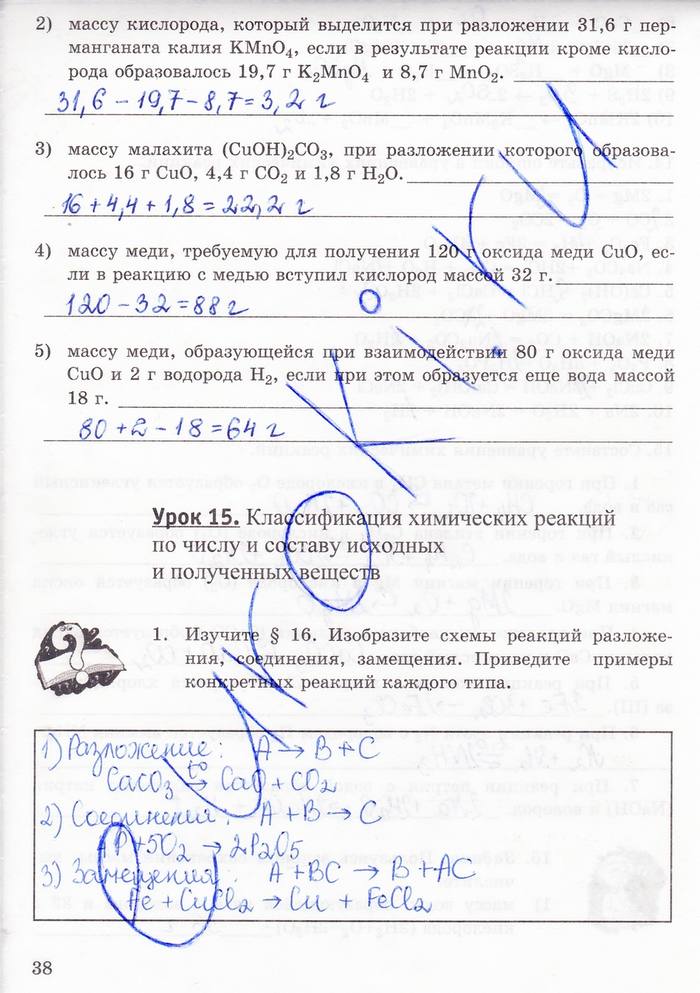 2) массу кислорода, который выделится при разложении 31,6 г пер-
манганата калия KMnO₄, если в результате реакции кроме кисло-
рода образовалось 19,7 г K₂MnO₄ и 8,7 г MnO₂.
31,6 – 19,7 – 8,7 = 3,2 г
3) массу малахита (CuOH)₂CO₃, при разложении которого образова-
лось 16 г CuO, 4,4 г CO₂ и 1,8 г H₂O.
16 + 4,4 + 1,8 = 22,2 г
4) массу меди, требуемую для получения 120 г оксида меди CuO, ес-
ли в реакцию с медью вступил кислород массой 32 г.
120 – 32 = 88 г
5) массу меди, образующейся при взаимодействии 80 г оксида меди
CuO и 2 г водорода H₂, если при этом образуется еще вода массой
18 г.
80 + 2 – 18 = 64 г
Урок 15. Классификация химических реакций
по числу и составу исходных
и полученных веществ
1. Изучите § 16. Изобразите схемы реакций разложе-
ния, соединения, замещения. Приведите примеры
конкретных реакций каждого типа.
1) Разложение: A → B + C
CaCO₃ t° → CaO + CO₂
2) Соединения: A + B → C
4P + 5O₂ → 2P₂O₅
3) Замещения: A + BC → B + AC
Fe + CuCl₂ → Cu + FeCl₂
38